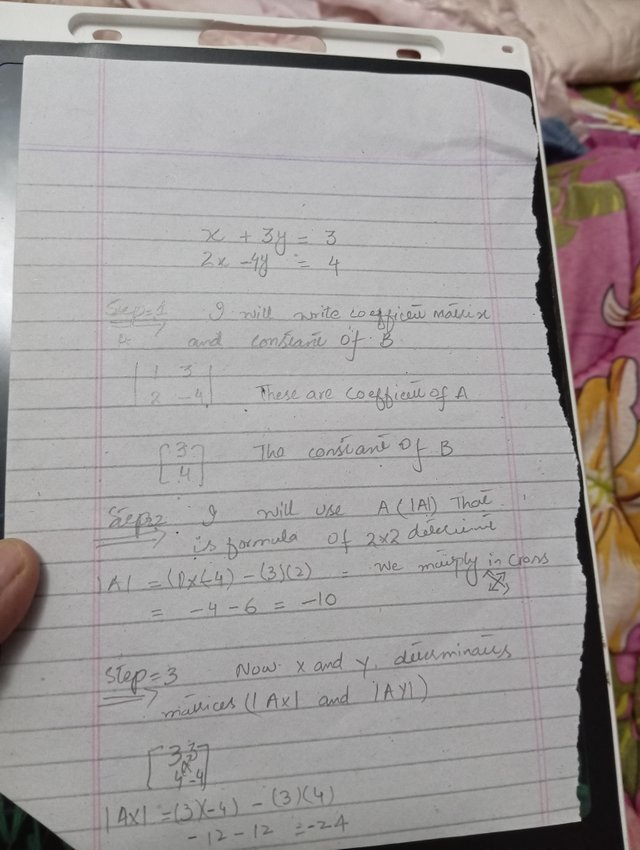 x + 3y = 3
2x - 4y = 4
Step=1 I will write coefficen matrix
and constant of B
| 1 3 |
| 2 -4 | These are coefficeut of A
[ 3
4 ] The constant of B
Step=2 I will use A (|A|) That
is formula of 2x2
|A| = (1)x(-4) - (3)(2) = We in cross
= -4 - 6 = -10
Step=3 Now x and y,
matrices (|Ax| and |AY|)
[ 3 3
4 -4 ]
|Ax| = (3)(-4) - (3)(4)
-12 - 12 = -24